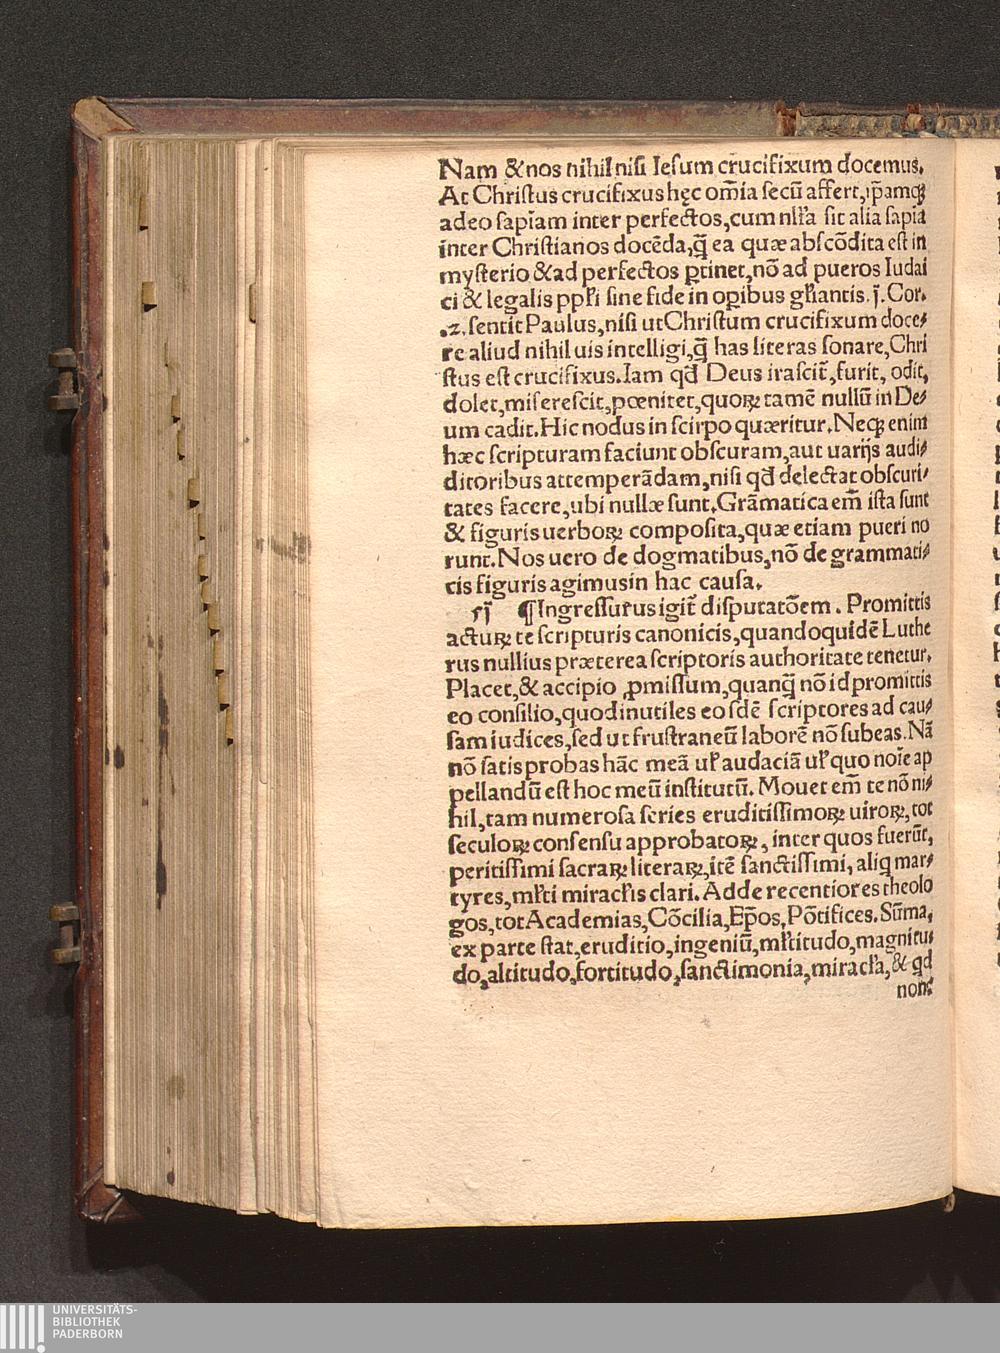 Nam & nos nihil nisi Iesum crucifixum docemus.
At Christus crucifixus hęc om̃ia secũ affert, ip̃amqꝫ
adeo sapiam inter perfectos, cum nĺła sit alia sapĩa
inter Christianos docẽda, q̃ ea quæ abscõdita est in
mysterio & ad perfectos ꝑtinet, nõ ad pueros Iudai
ci & legalis ppłi sine fide in oꝑibus głiantis. j. Cor.
.2. sentit Paulus, nisi ut Christum crucifixum doce⸗
re aliud nihil uis intelligi, q̃ has literas sonare, Chri
stus est crucifixus. Iam qđ Deus irascit̃, furit, odit,
dolet, miserescit, pœnitet, quoꝝ tamẽ nullũ in De⸗
um cadit. Hic nodus in scirpo quæritur. Necꝫ enim
hæc scripturam faciunt obscuram, aut uarijs audi⸗
ditoribus attemperãdam, nisi qđ delectat obscuri⸗
tates facere, ubi nullæ sunt. Grãmatica em̃ ista sunt
& figuris uerboꝝ composita, quæ etiam pueri no
runt. Nos uero de dogmatibus, nõ de grammati⸗
cis figuris agimus in hac causa.
¶Ingressurus igit̃ disputatõem. Promittis
actuꝝ te scripturis canonicis, quandoquidẽ Luthe
rus nullius præterea scriptoris authoritate tenetur.
Placet, & accipio ꝓmissum, quanq̃ nõ id promittis
eo consilio, quod inutiles eosdẽ scriptores ad cau⸗
sam iudices, sed ut frustraneũ laborẽ nõ subeas. Nã
nõ satis probas hãc meã uł audaciã uł quo noĩe ap
pellandũ est hoc meũ institutũ. Mouet em̃ te nõ ni⸗
hil, tam numerosa series eruditissimoꝝ uiroꝝ, tot
seculoꝝ consensu approbatoꝝ, inter quos fuerũt,
peritissimi sacraꝝ literaꝝ, itẽ sanctissimi, aliq mar⸗
tyres, młti miraculis clari. Adde recentiores theolo
gos, tot Academias, Cõcilia, Ep̃os, Põtifices. Sũma,
ex parte stat, eruditio, ingeniũ, młtitudo, magnitu⸗
do, altitudo, fortitudo, sanctimonia, miracła, & qđ
non
UNIVERSITÄTS-
BIBLIOTHEK
PADERBORN